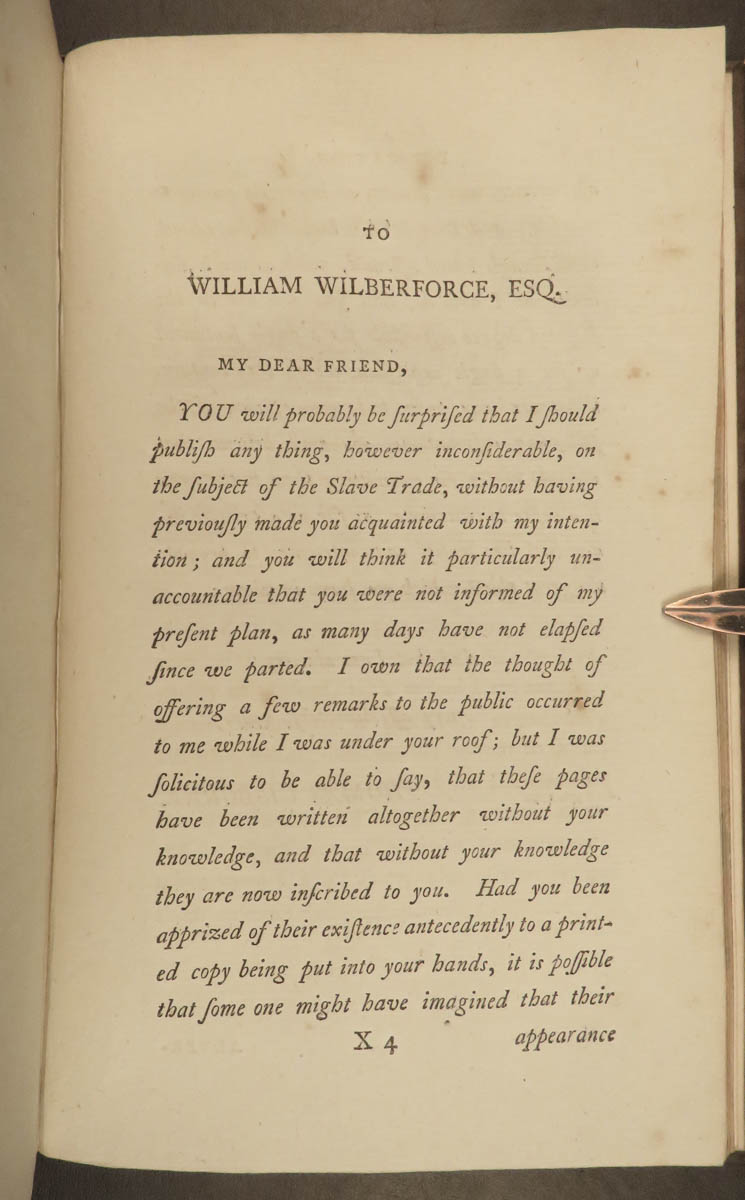 TO
WILLIAM WILBERFORCE, ESQ.
MY DEAR FRIEND,
YOU will probably be ſurpriſed that I ſhould
publiſh any thing, however inconſiderable, on
the ſubject of the Slave Trade, without having
previouſly made you acquainted with my inten-
tion; and you will think it particularly un-
accountable that you were not informed of my
preſent plan, as many days have not elapſed
ſince we parted. I own that the thought of
offering a few remarks to the public occurred
to me while I was under your roof; but I was
ſolicitous to be able to ſay, that theſe pages
have been written altogether without your
knowledge, and that without your knowledge
they are now inſcribed to you. Had you been
apprized of their exiſtence antecedently to a print-
ed copy being put into your hands, it is poſſible
that ſome one might have imagined that their
X 4 appearance